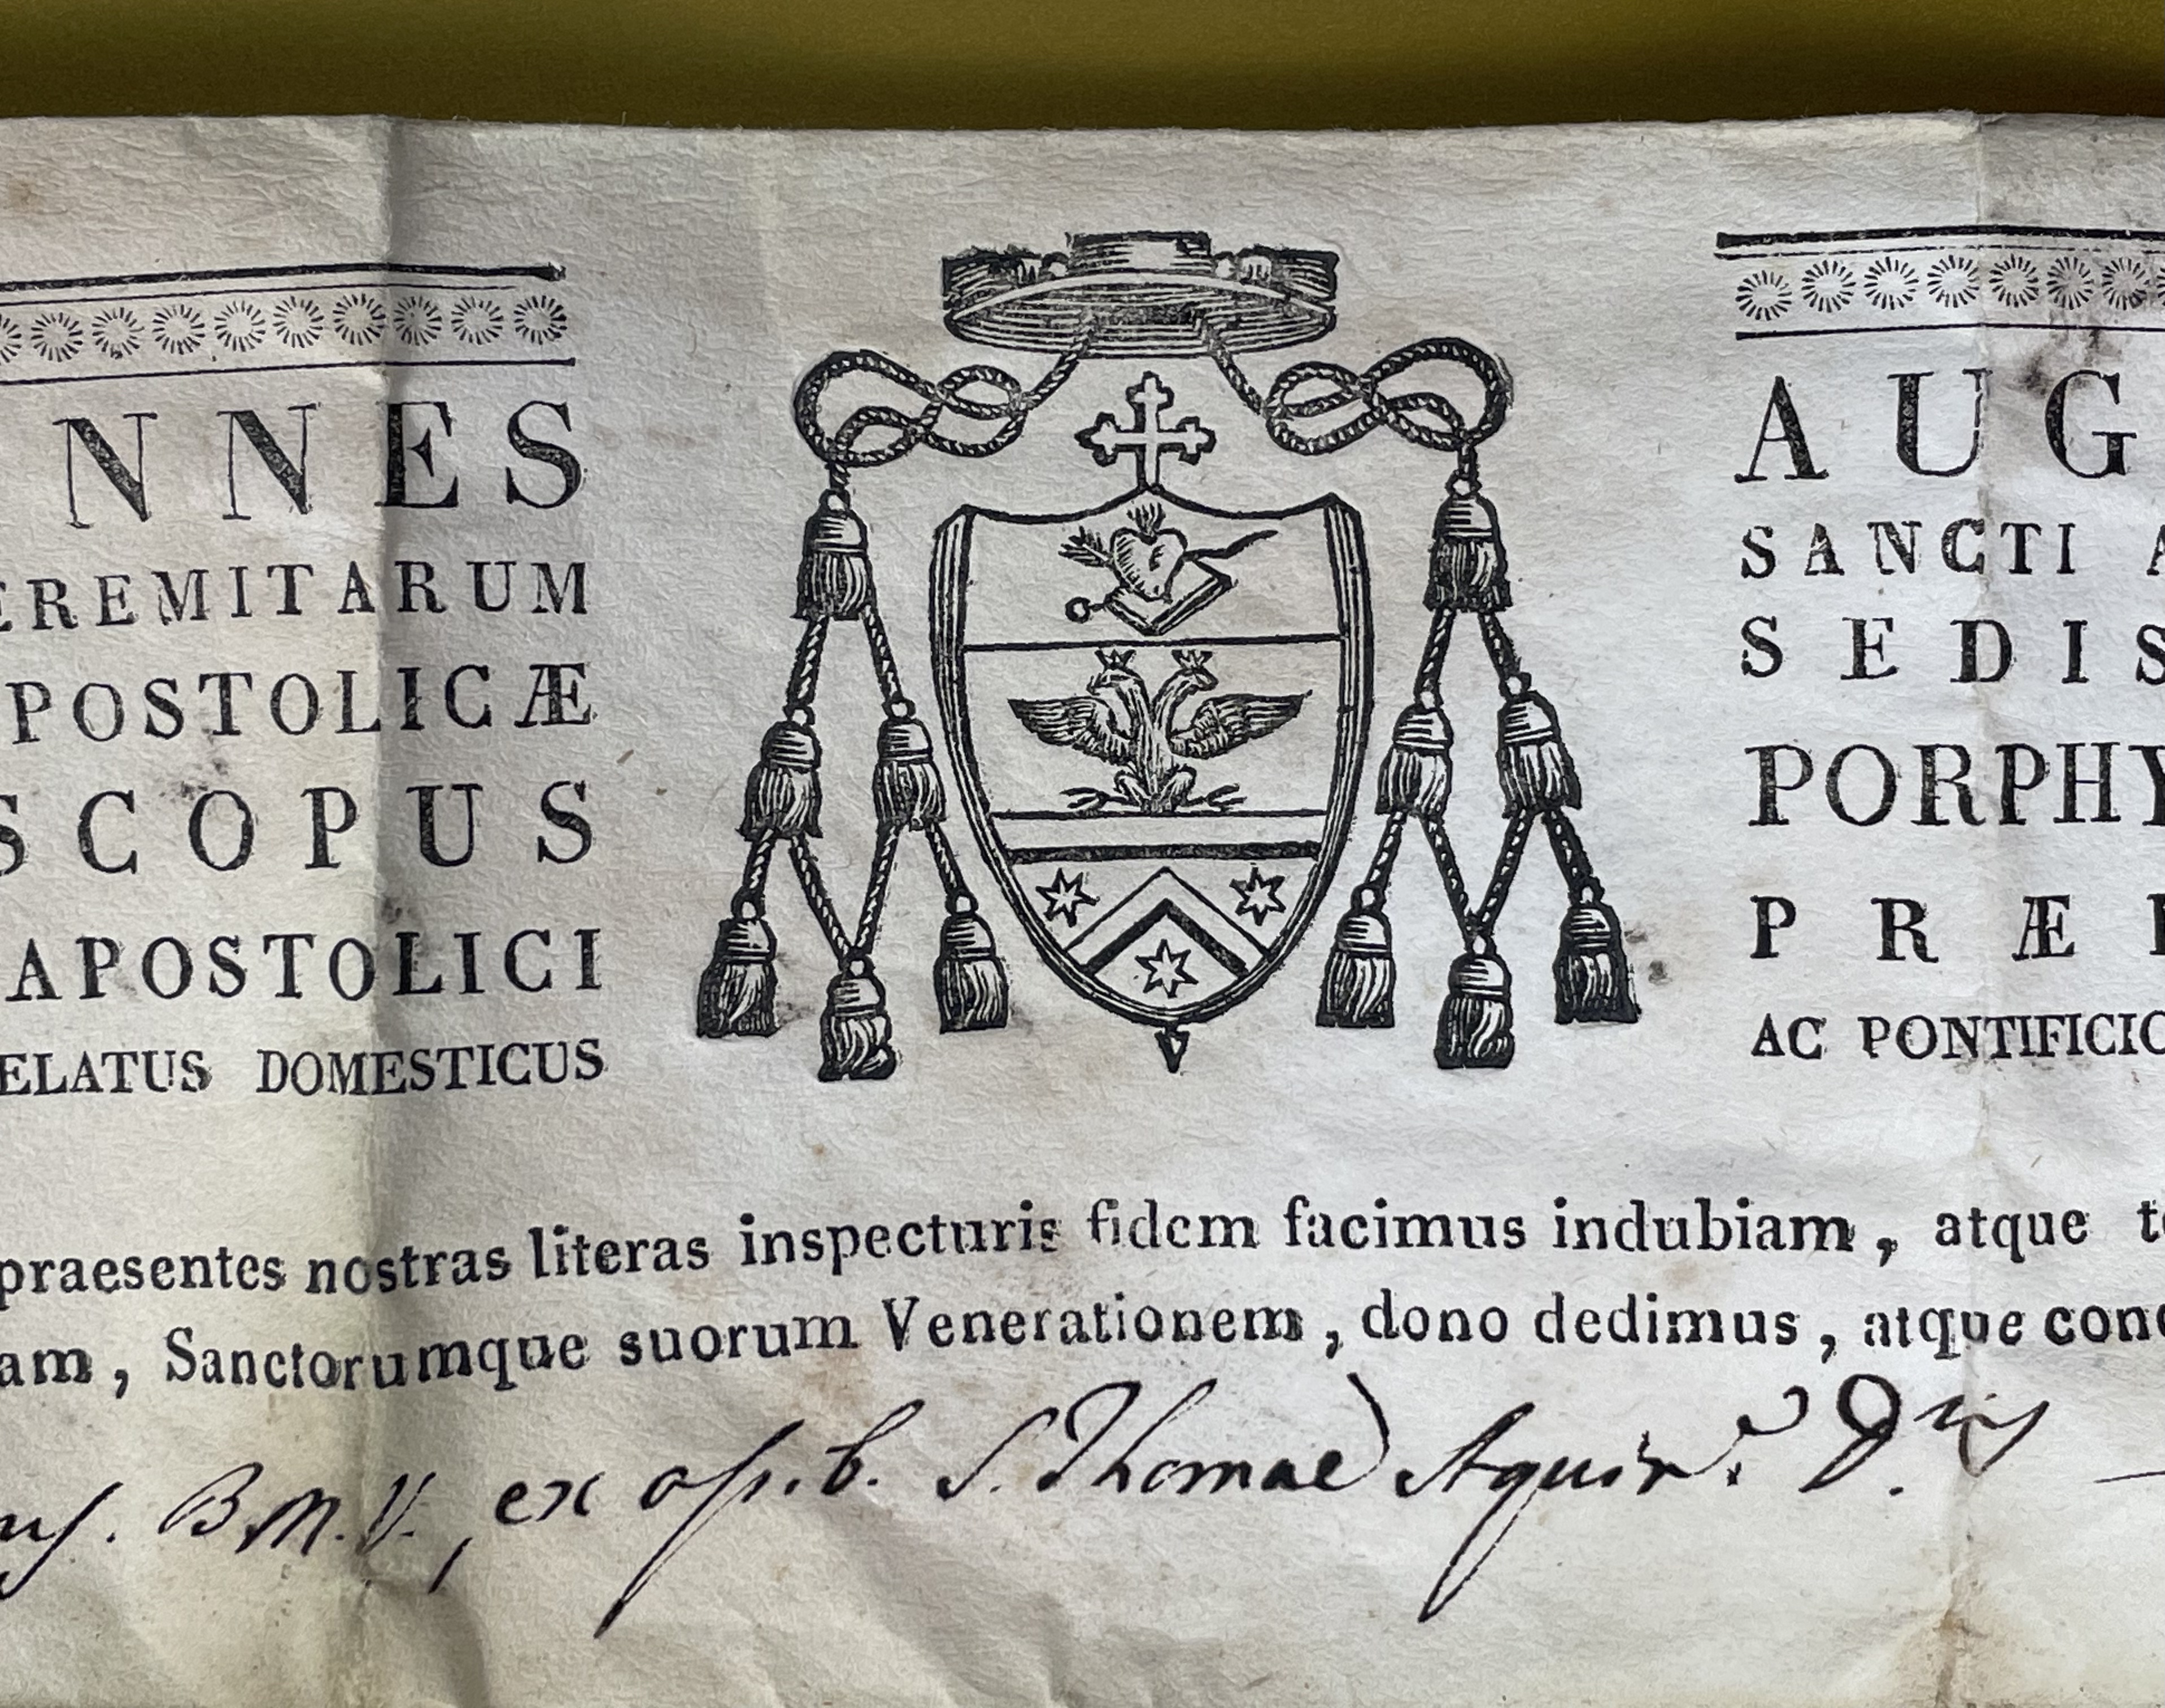 NNES AUG
EREMITARUM SANCTI A
POSTOLICÆ SEDIS
SCOPUS PORPHY
APOSTOLICI PRÆF
ELATUS DOMESTICUS AC PONTIFICIO
praesentes nostras literas inspecturis fidem facimus indubiam, atque te
am, Sanctorumque suorum Venerationem, dono dedimus, atque conc
B.M.V., ex ossib. S. Thomae Aquin.